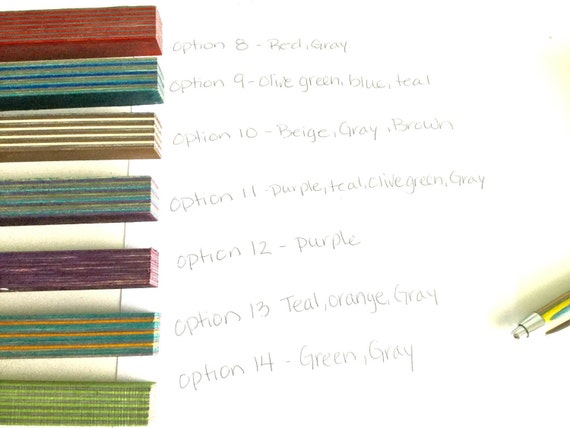 option 8 - Red, Gray
option 9 - Olive green, blue, teal
option 10 - Beige, Gray, Brown
option 11 - Purple, teal, olive green, Gray
option 12 - purple
option 13 Teal, orange, Gray
option 14 - Green, Gray